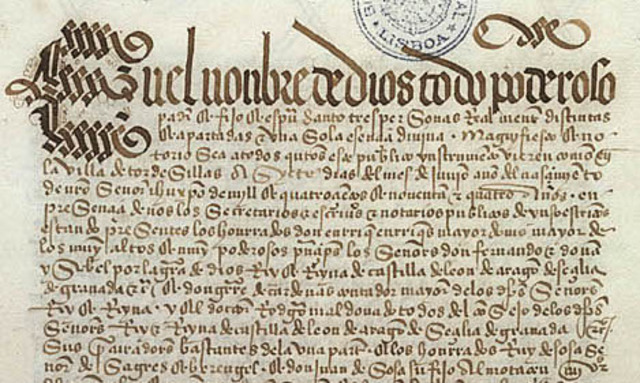 LISBOA
En el nonbre de dios todo poderoso
padre & fijo & espu santo tres personas Real mente distintas
& apartadas & vna Sola esencia diujna . Magnifiesto & no
torio Sea a todos quantos este publico ynstrumento vieren como en
la villa de tordesillas A Syete dias del mes de junio año del nasçimiento
de nro Señor ihuxpo de mill & quatroçientos & nouenta & quatro Años . en
presençia de nos los Secretarios & escriuanos & notarios publicos de yuso escriptos
estando presentes los honrrados don enrrique enrriques mayordomo mayor de
los muy altos & muy poderosos prinçipes los Señores don fernando & doña
ysabel por la graçia de dios Rey & Reyna de castilla de leon de aragon de seçilia
de granada & & don gutierre de cardenas contador mayor de los dichos Señores
Rey & Reyna . y el doctor Rodrigo maldonado todos del consejo de los dichos
Señores Rey & Reyna de castilla de leon de aragon de Seçilia de granada
Sus procuradores bastantes de la vna parte . & los honrrados Ruy de sosa Se
ñor de Sagres & berengel . & don juan de Sosa su fijo Almotaçen